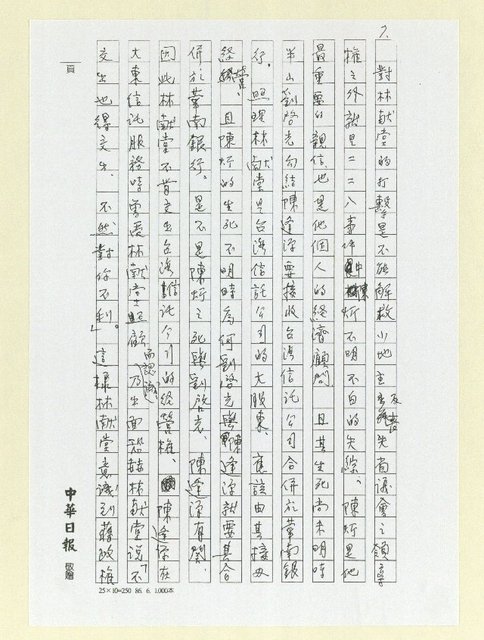 7.
對林献堂的打擊是不能解救小地主與喪失省議會之領導
權之外就是二二八事件中陳炘不明不白的失綜。陳炘是他
最重要的親信也是他個人的経濟顧問。且其生死尚未明時
半山劉啓光勾結陳逢源要接收台湾信託公司合併於華南銀
行。照理林献堂是台湾信託公司的大股東。應該由其接办
経營。且陳炘的生死不明時為何劉啓光與陳逢源就要其合
併於華南銀行。是不是陳炘之死與劉啓光、陳逢源有関。
因此林献堂不肯交出台湾信託公司的経營権、陳逢源在
大東信託服務時曾受林献堂照顧而認識乃出面恐赫林献堂說「不
交出也得交出。不然對你不利」。這樣林献堂意識到蔣政権
頁
中華日報
敬贈
25×10=250 86.6.1,000本